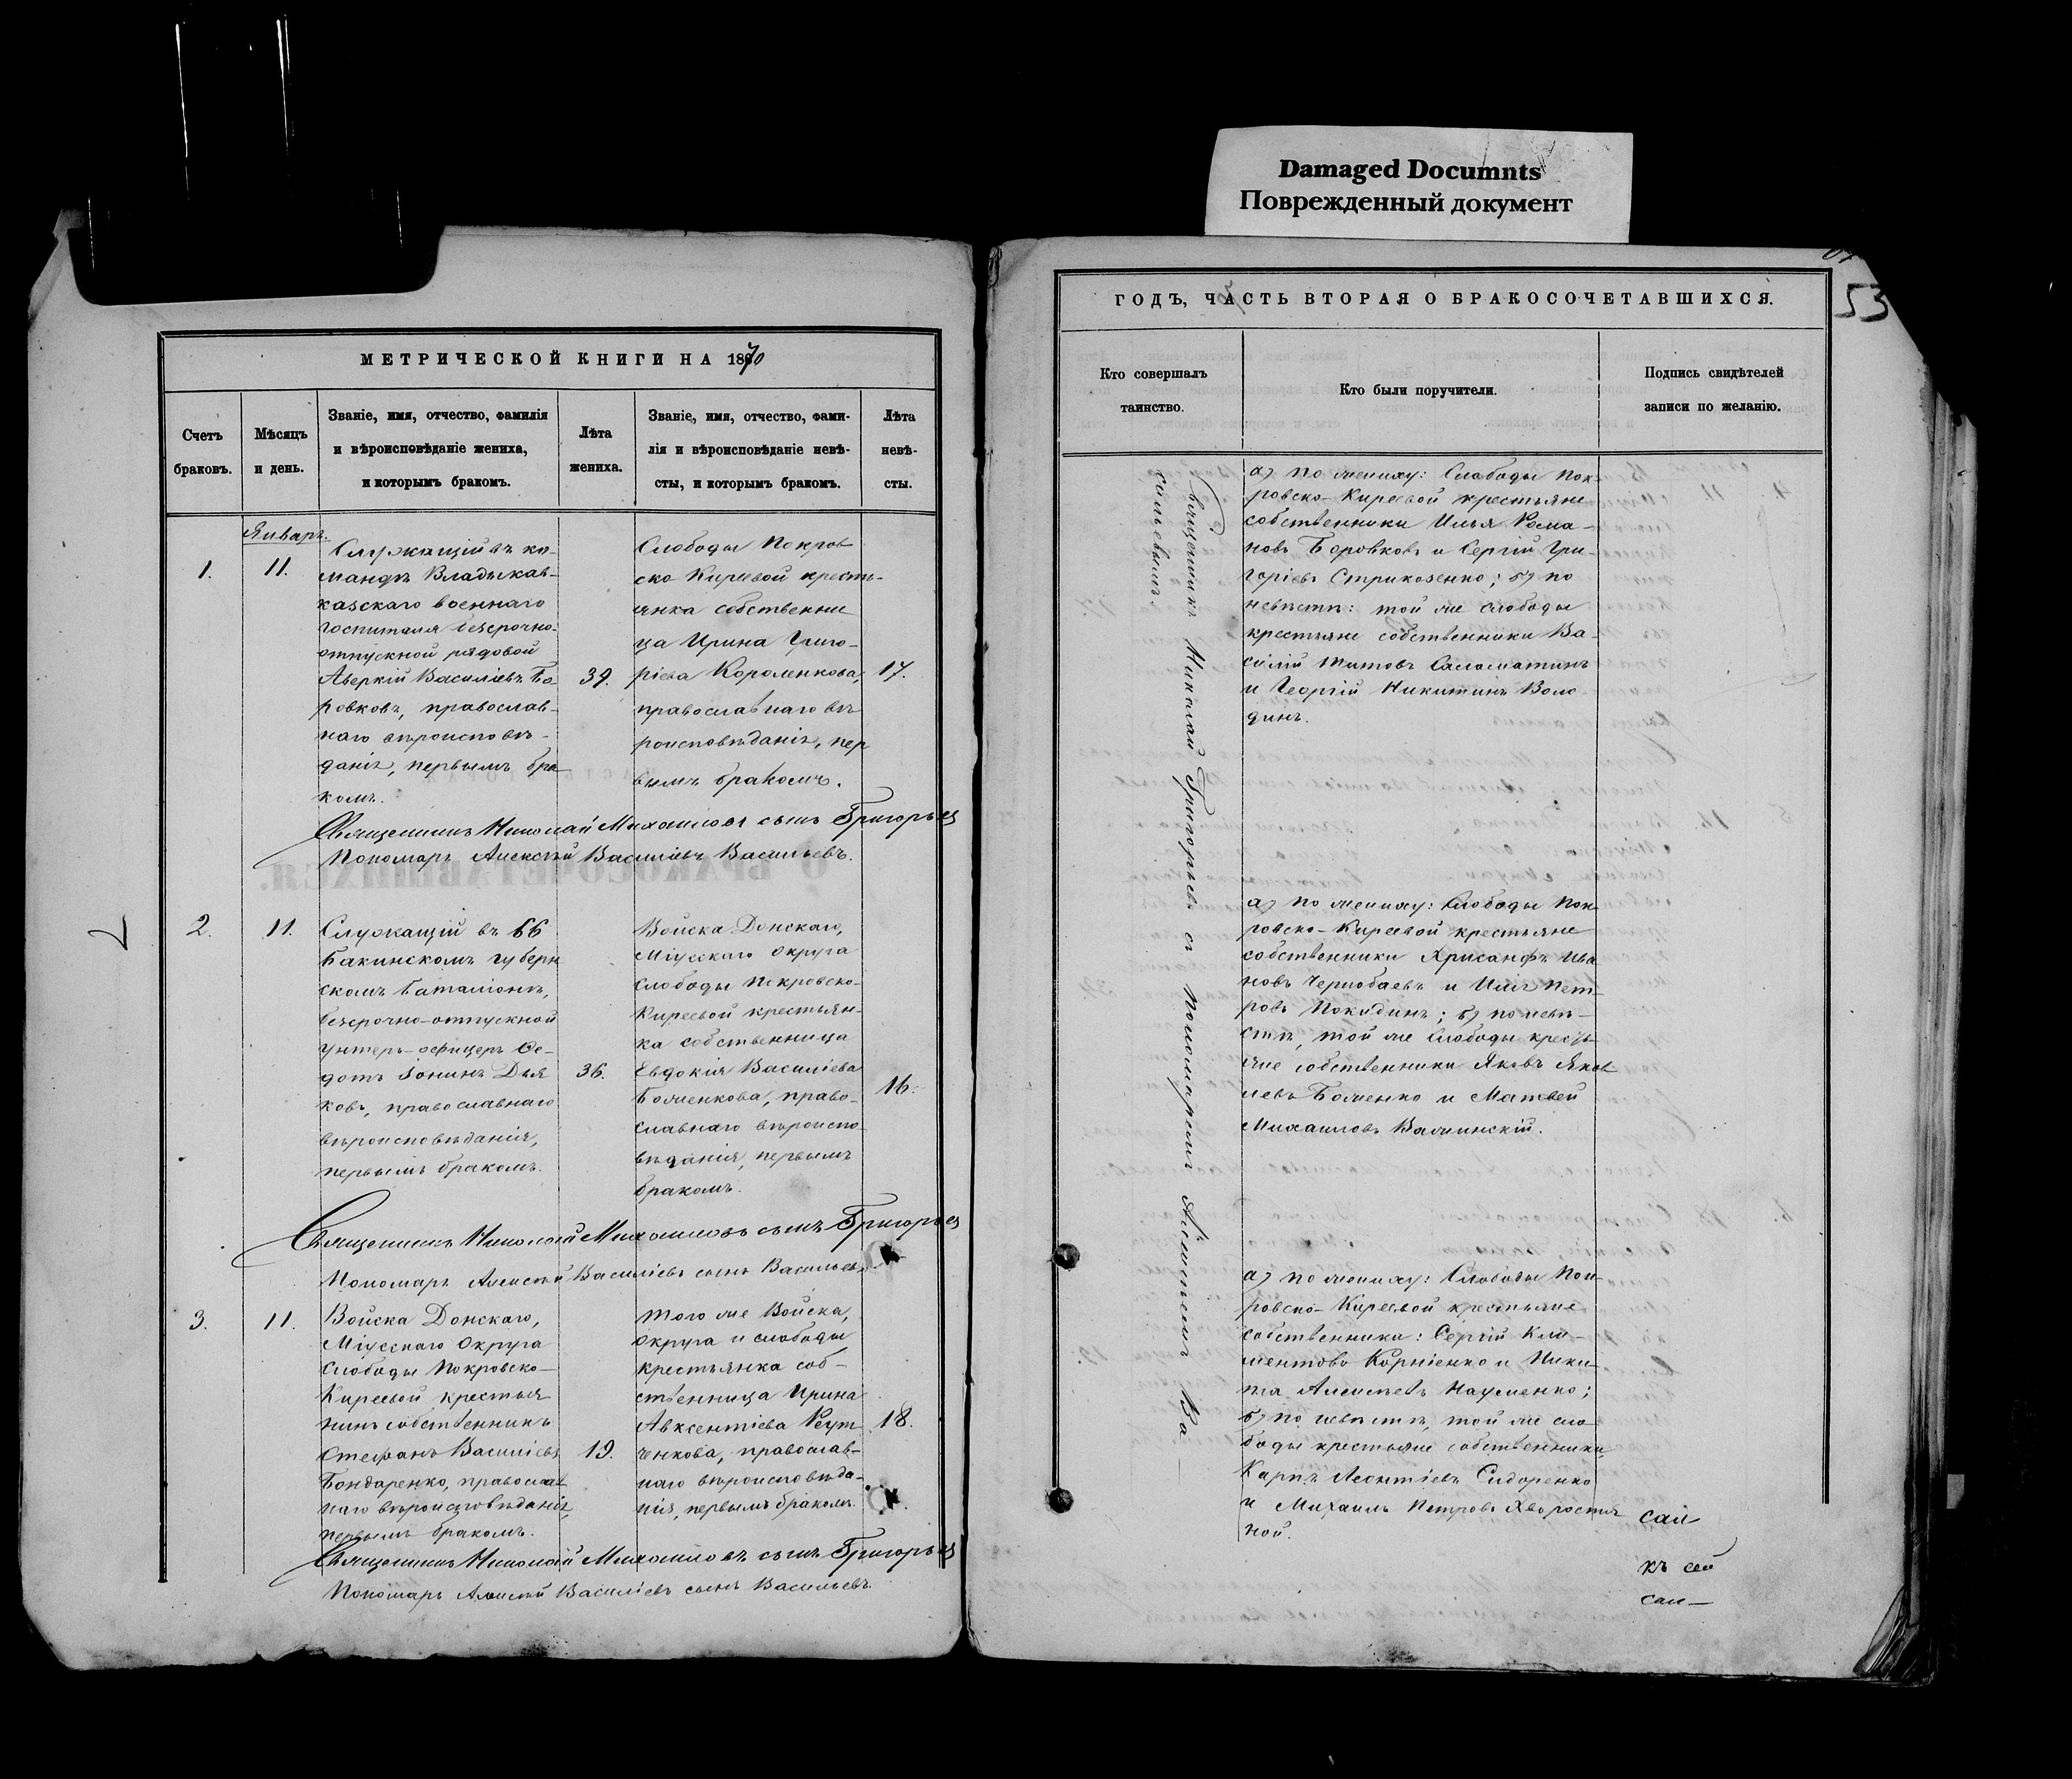 Damaged Documnts
Поврежденный документ
МЕТРИЧЕСКОЙ КНИГИ НА 1870
Счетъ
браковъ.
Мѣсяцъ
и день.
Званіе, имя, отчество, фамилія
и вѣроисповѣданіе жениха,
и которымъ бракомъ.
Лѣта
жениха.
Званіе, имя, отчество, фами-
лія и вѣроисповѣданіе невѣ-
сты, и которымъ бракомъ.
Лѣта
невѣ-
сты.
Январь.
1.
11.
Служащій въ ко-
мандѣ Владыкав-
казскаго военнаго
госпиталя безсрочно-
отпускной рядовой
Аверкій Василіевъ Бо-
ровковъ, православ-
наго вѣроисповѣ-
данія, первымъ бра-
комъ.
39.
Слободы Покров
ско-Киреевой кресть-
янка собственни
ца Ирина Григо-
ріева Короленкова,
православнаго вѣ-
роисповѣданія, пер
вымъ бракомъ.
17.
Священникъ Николай Михаиловъ сынъ Григорьев
Пономарь Алексѣй Василіевъ Васильевъ.
2.
11.
Служащій въ 66
Бакинскомъ губерн
скомъ баталіонѣ,
безсрочно-отпускной
унтеръ-офицеръ Ѳе-
дотъ Іонинъ Дья
ковъ, православнаго
вѣроисповѣданія,
первымъ бракомъ.
36.
Войска Донскаго,
Міусскаго Округа
слободы Покровско-
Киреевой крестьян-
ка собственница
Евдокія Василіева
Боженкова, право-
славнаго вѣроиспо-
вѣданія, первымъ
бракомъ.
16.
Священникъ Николай Михаиловъ сынъ Григорьев
Пономарь Алексѣй Василіевъ сынъ Васильевъ
3.
11.
Войска Донскаго,
Міусскаго Округа
слободы Покровско-
Киреевой крестья
нинъ собственникъ
Стефанъ Василіевъ
Бондаренко, православ
наго вѣроисповѣданія,
первымъ бракомъ.
19.
Того же Войска,
Округа и слободы
крестьянка соб-
ственница Ирина
Авксентіева Реут
ченкова, православ-
наго вѣроисповѣда-
нія, первымъ бракомъ.
18.
Священникъ Николай Михаиловъ сынъ Григорьев
Пономарь Алексѣй Василіевъ сынъ Васильевъ.
ГОДЪ, ЧАСТЬ ВТОРАЯ О БРАКОСОЧЕТАВШИХСЯ.
53
Кто совершалъ
таинство.
Кто были поручители.
Подпись свидѣтелей
записи по желанію.
Священникъ Николай Григорьевъ съ пономаремъ Алексѣемъ Ва-
сильевымъ.
а) по жениху: Слободы Пок-
ровско-Киреевой крестьяне
собственники Илья Рома-
новъ Боровковъ и Сергій Гри-
горіевъ Стрикозенко; б) по
невѣстѣ: той же слободы
крестьяне собственники Ва-
силій Титовъ Саломатинъ
и Георгій Никитинъ Воло-
динъ.
а) по жениху: Слободы Пок-
ровско-Киреевой крестьяне
собственники Хрисанфъ Ива
новъ Чернобаевъ и Илія Пет-
ровъ Покидинъ; б) по невѣ-
стѣ, той же слободы кресть-
яне собственники Яковъ Яков
левъ Боженко и Матвей
Михаиловъ Калминскій.
а) по жениху: Слободы Пок-
ровско-Киреевой крестьяне
собственники: Сергій Кли-
ментовъ Корніенко и Ники-
та Алексѣевъ Науменко;
б) по невѣстѣ, той же сло-
боды крестьяне собственники
Карпъ Леонтіевъ Сидоренко
и Михаилъ Петровъ Хворостя
ной.
сал
къ сей
сал—